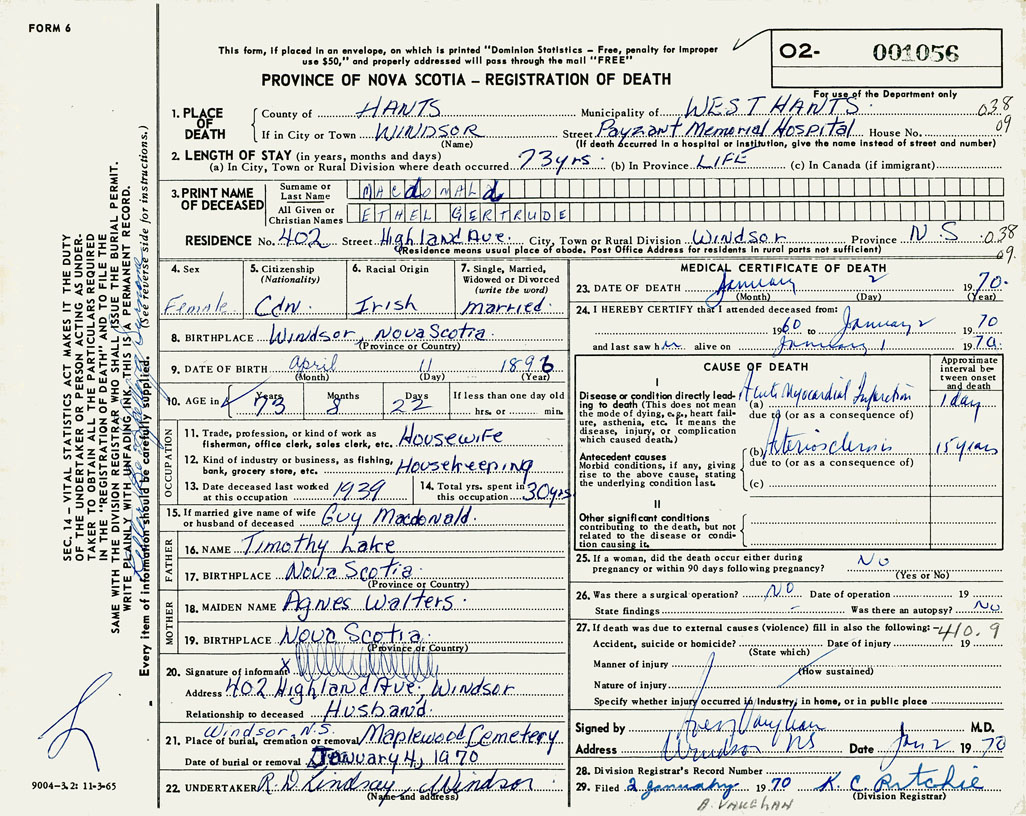 FORM 6
This form, if placed in an envelope, on which is printed "Dominion Statistics – Free, penalty for improper
use $50," and properly addressed will pass through the mail "FREE"
PROVINCE OF NOVA SCOTIA – REGISTRATION OF DEATH
O2- 001056
For use of the Department only
038
09
1. PLACE OF DEATH
County of HANTS Municipality of WEST HANTS
If in City or Town WINDSOR Street Payzant Memorial Hospital House No.
(Name) (If death occurred in a hospital or institution, give the name instead of street and number)
2. LENGTH OF STAY (in years, months and days)
(a) In City, Town or Rural Division where death occurred 73 yrs. (b) In Province LIFE (c) In Canada (if immigrant)
3. PRINT NAME OF DECEASED
Surname or Last Name MACdONALd
All Given or Christian Names ETHEL GERTRUDE
RESIDENCE No. 402 Street Highland Ave. City, Town or Rural Division Windsor Province N S 038
(Residence means usual place of abode. Post Office Address for residents in rural parts not sufficient) 09.
4. Sex Female
5. Citizenship (Nationality) Cdn.
6. Racial Origin Irish
7. Single, Married, Widowed or Divorced (write the word) married.
8. BIRTHPLACE Windsor, Nova Scotia
(Province or Country)
9. DATE OF BIRTH April 11 1896
(Month) (Day) (Year)
10. AGE in Years 73 Months 8 Days 22 If less than one day old
hrs. or min.
OCCUPATION
11. Trade, profession, or kind of work as fisherman, office clerk, sales clerk, etc. Housewife
12. Kind of industry or business, as fishing, bank, grocery store, etc. Housekeeping
13. Date deceased last worked at this occupation 1939
14. Total yrs. spent in this occupation 30 yrs
15. If married give name of wife or husband of deceased Guy Macdonald.
FATHER
16. NAME Timothy Lake
17. BIRTHPLACE Nova Scotia
(Province or Country)
MOTHER
18. MAIDEN NAME Agnes Walters.
19. BIRTHPLACE Nova Scotia.
(Province or Country)
20. Signature of informant X
Address 402 Highland Ave; Windsor
Relationship to deceased Husband.
Windsor, N.S.
21. Place of burial, cremation or removal Maplewood Cemetery
Date of burial or removal January 4, 1970
22. UNDERTAKER R. D. Lindsay, Windsor
(Name and address)
MEDICAL CERTIFICATE OF DEATH
23. DATE OF DEATH January 2 1970.
(Month) (Day) (Year)
24. I HEREBY CERTIFY that I attended deceased from:
1960 to January 2 1970
and last saw her alive on January 1 1970.
CAUSE OF DEATH
Approximate interval between onset and death
I
Disease or condition directly leading to death (This does not mean the mode of dying, e.g., heart failure, asthenia, etc. It means the disease, injury, or complication which caused death.)
(a) Acute Myocardial Infarction 1 day
due to (or as a consequence of)
Antecedent causes
Morbid conditions, if any, giving rise to the above cause, stating the underlying condition last.
(b) Arteriosclerosis 15 years
due to (or as a consequence of)
(c)
II
Other significant conditions contributing to the death, but not related to the disease or condition causing it.
25. If a woman, did the death occur either during pregnancy or within 90 days following pregnancy? No
(Yes or No)
26. Was there a surgical operation? NO Date of operation 19
State findings – Was there an autopsy? No
27. If death was due to external causes (violence) fill in also the following: – 410.9
Accident, suicide or homicide? Date of injury 19
(State which)
Manner of injury
(How sustained)
Nature of injury
Specify whether injury occurred in Industry, in home, or in public place
Signed by Vaughan M.D.
Address Windsor NS Date Jan 2 1970
28. Division Registrar's Record Number
29. Filed 2 January 1970 K. C. Ritchie
(Division Registrar)
A. VAUGHAN
SEC. 14 – VITAL STATISTICS ACT MAKES IT THE DUTY
OF THE UNDERTAKER OR PERSON ACTING AS UNDER-
TAKER TO OBTAIN ALL THE PARTICULARS REQUIRED
IN THE "REGISTRATION OF DEATH" AND TO FILE THE
SAME WITH THE DIVISION REGISTRAR WHO SHALL ISSUE THE BURIAL PERMIT.
WRITE PLAINLY WITH UNFADING INK. THIS IS A PERMANENT RECORD.
Every item of information should be carefully supplied. (See reverse side for instructions.)
9004–3.2: 11-3-65